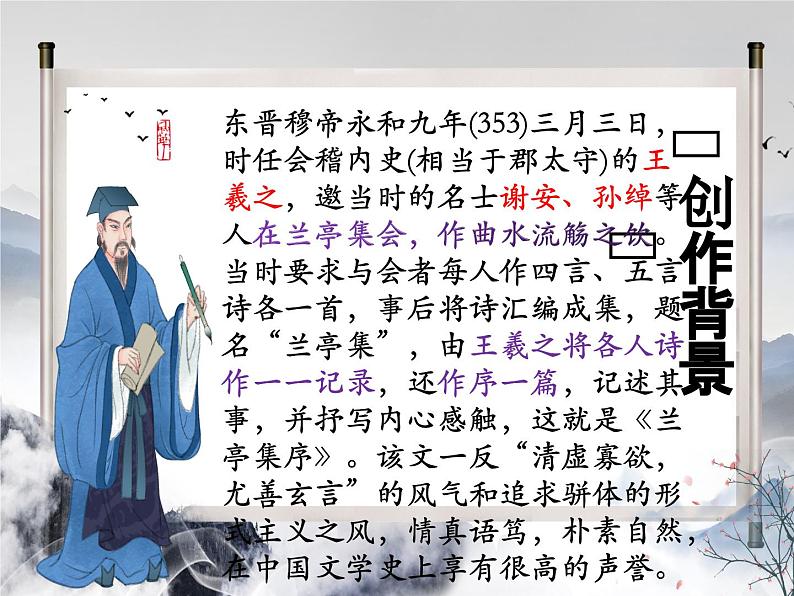 东晋穆帝永和九年(353)三月三日，
时任会稽内史(相当于郡太守)的王
羲之，邀当时的名士谢安、孙绰等
人在兰亭集会，作曲水流觞之饮。
当时要求与会者每人作四言、五言
诗各一首，事后将诗汇编成集，题
名“兰亭集”，由王羲之将各人诗
作一一记录，还作序一篇，记述其
事，并抒写内心感触，这就是《兰
亭集序》。该文一反“清虚寡欲，
尤善玄言”的风气和追求骈体的形
式主义之风，情真语笃，朴素自然，
在中国文学史上享有很高的声誉。
创作背景